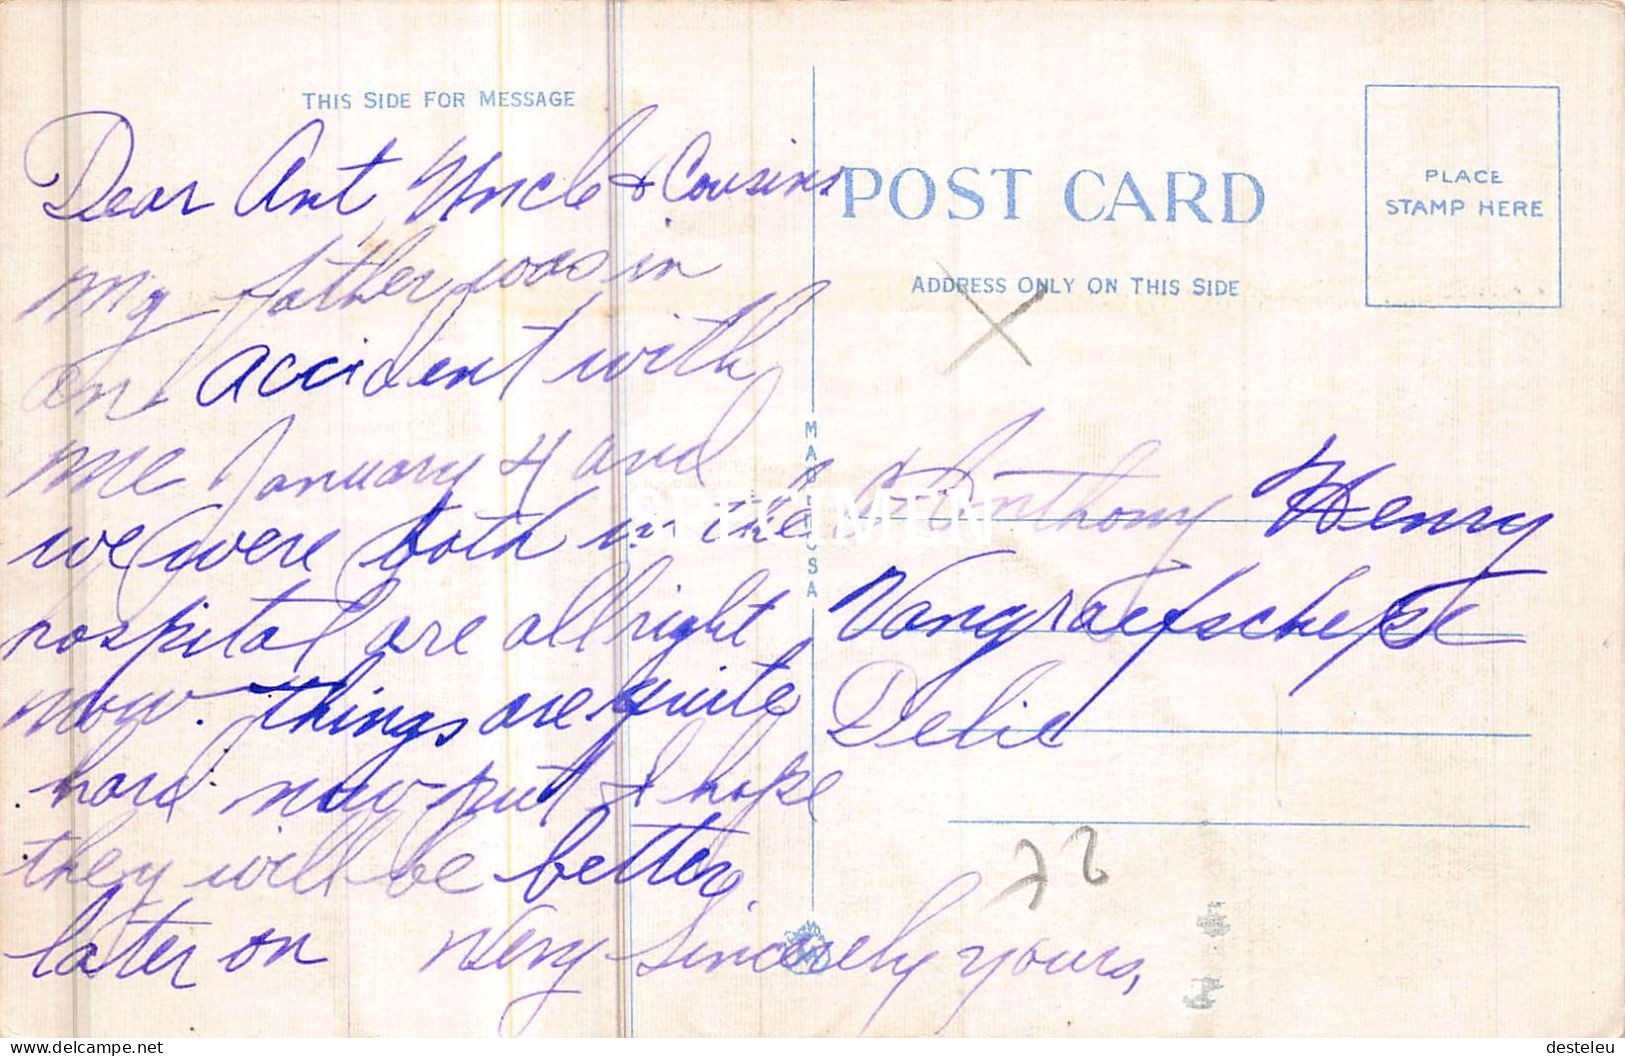 THIS SIDE FOR MESSAGE
Dear Ant, Uncle & Cousins
my father was in
an accident with
me January 4 and
we were both in the
hospital are all right
now. things are quite
hard now but I hope
they will be better
later on Very Sincerely yours,
POST CARD
ADDRESS ONLY ON THIS SIDE
PLACE
STAMP HERE
MADE IN USA
SPECIMEN
Anthony Henry
Vangraefschepe
Delie
© desteleu.be
desteleu